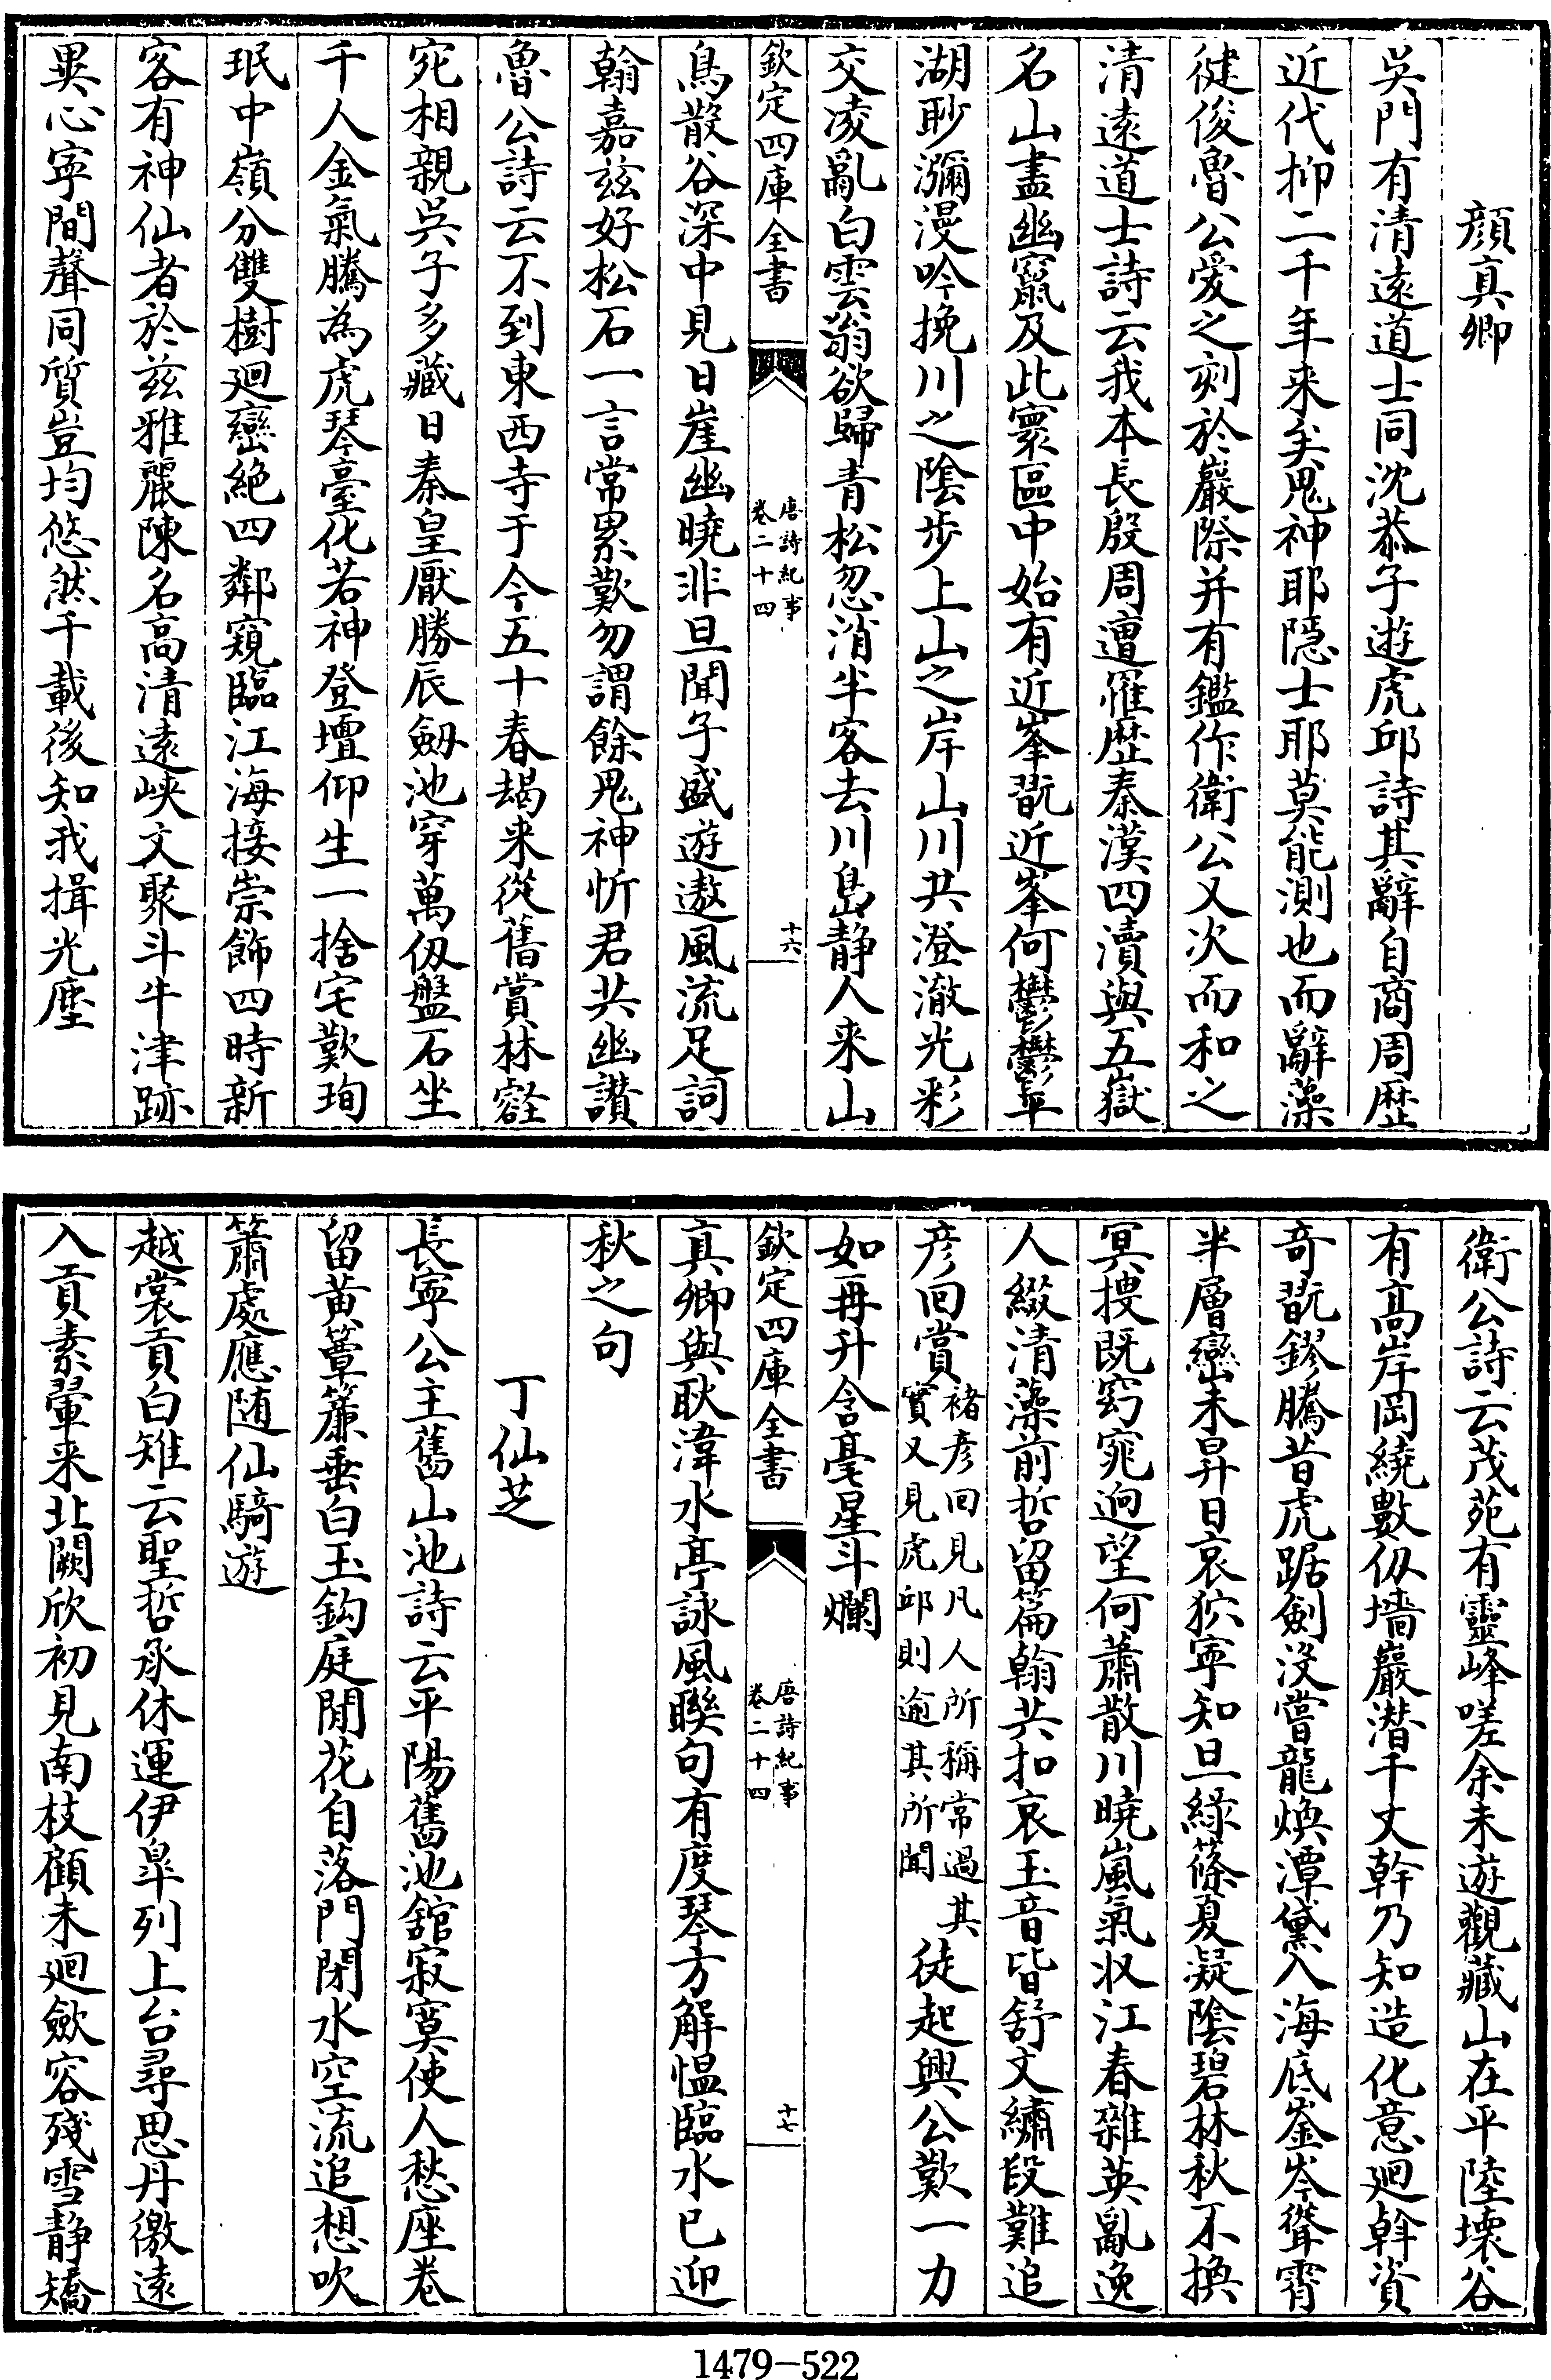 顔真卿
吳門有清遠道士同沈恭子遊虎邱詩其辭自商周歴
近代抑二千年来矣鬼神耶隠士耶莫能測也而辭藻
徤俊魯公愛之刻於巖際并有鑑作衛公又次而和之
清遠道士詩云我本長殷周遭罹歴秦漢四瀆與五嶽
名山盡幽竄及此寰區中始有近峯翫近峯何鬱鬱平
湖眇瀰漫吟挽川之隂步上山之岸山川共澄澈光彩
交凌亂白雲蓊欲歸青松忽消半客去川島静人来山
欽定四庫全書
唐詩紀事
卷二十四
十六
鳥散谷深中見日崖幽曉非旦聞子盛遊遨風流足詞
翰嘉兹好松石一言常累歎勿謂餘鬼神忻君共幽讃
魯公詩云不到東西寺于今五十春朅来從舊賞林壑
宛相親吳子多藏日秦皇厭勝辰劒池穿萬仭盤石坐
千人金氣騰為虎琴臺化若神登壇仰生一捨宅歎珣
珉中嶺分雙樹廻巒絶四鄰窺臨江海接崇飾四時新
客有神仙者於兹雅麗陳名高清遠峽文聚斗牛津跡
異心寜間聲同質豈均悠然千載後知我揖光塵
衛公詩云茂苑有靈峰嗟余未遊觀藏山在平陸壊谷
有髙岸岡繞數仭墻巖潜千丈幹乃知造化意廻斡資
奇翫鏐騰昔虎踞劍没嘗龍煥潭黛入海底崟岑聳霄
半層巒未昇日哀狖寜知旦緑篠夏凝隂碧林秋不換
冥捜既窈窕逈望何蕭散川曉嵐氣收江春雜英亂逸
人綴清藻前哲留篇翰共扣哀玉音皆舒文繡段難追
彦回賞褚彦回見凡人所稱常過其
實又見虎邱則逾其所聞徒起興公歎一力
如再升含毫星斗爛
欽定四庫全書
唐詩紀事
卷二十四
十七
真卿與耿湋水亭詠風聮句有度琴方解愠臨水已迎
秋之句
丁仙芝
長寧公主舊山池詩云平陽舊池舘寂寞使人愁座卷
留黄簟簾垂白玉鈎庭閒花自落門閉水空流追想吹
簫處應随仙騎遊
越裳貢白雉云聖哲承休運伊臯列上台尋思丹徼遠
入貢素翬来北闕欣初見南枝顧未廻歛容殘雪静矯
1479-522